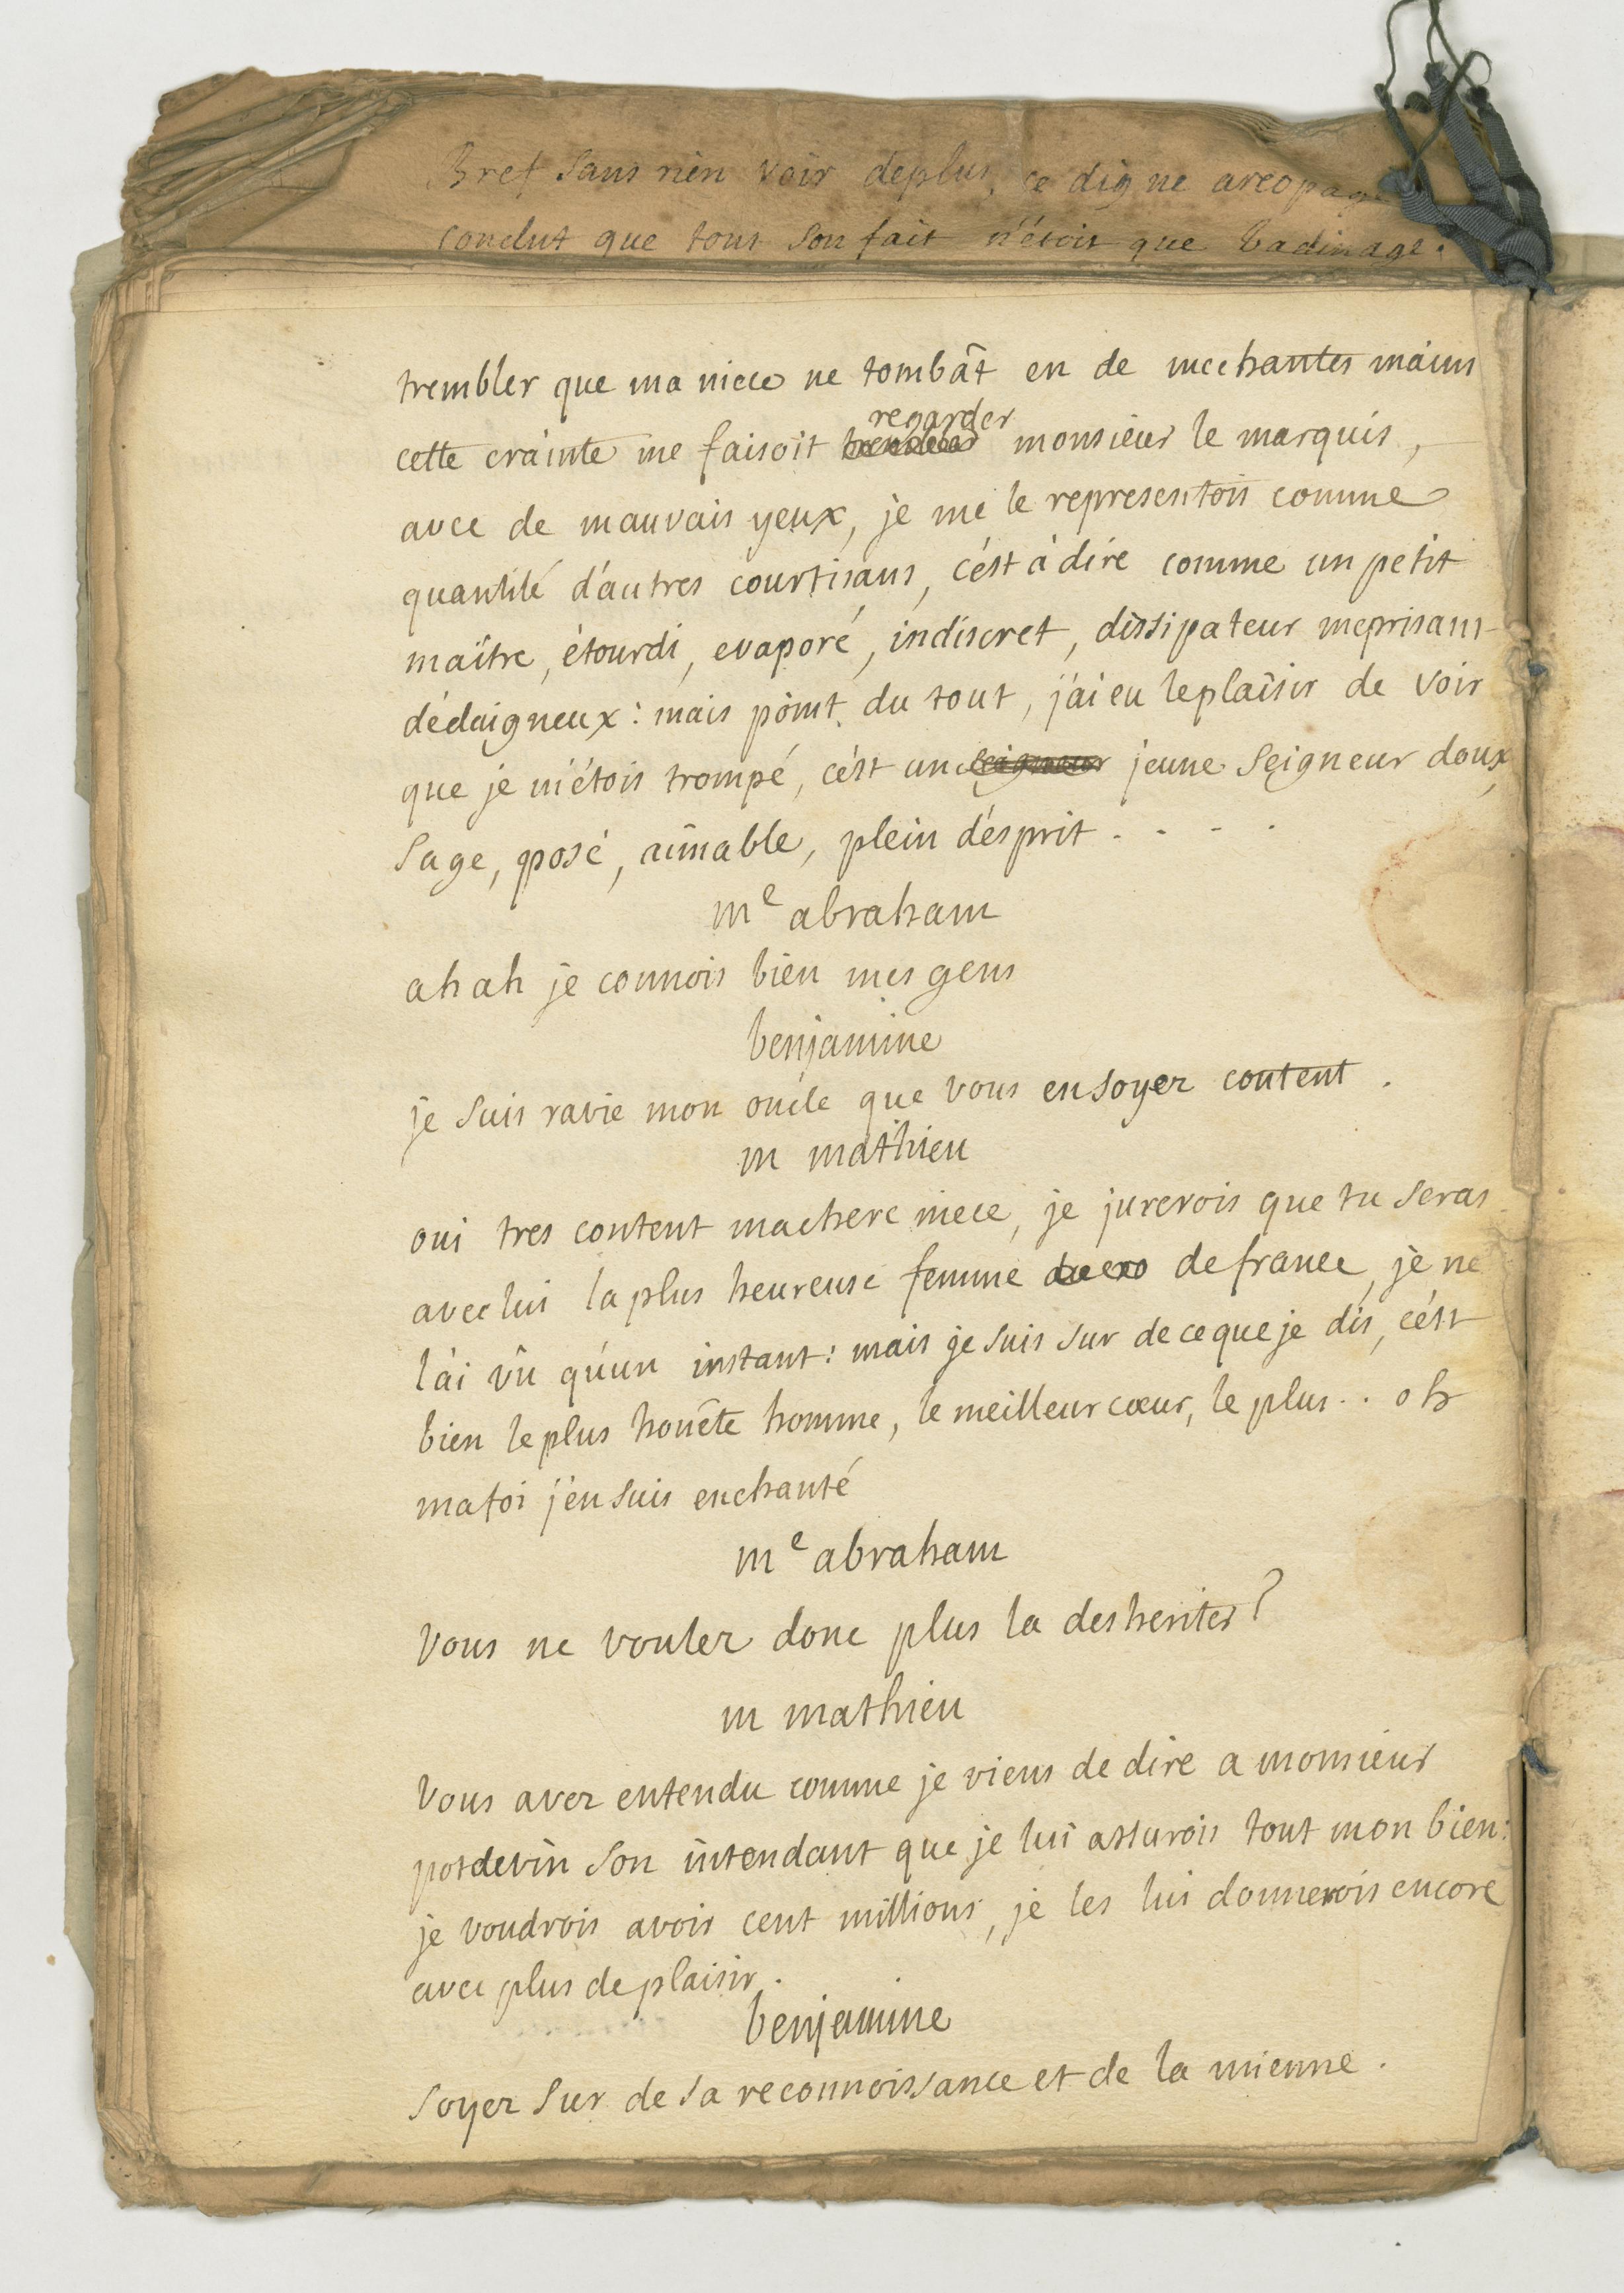 Bref sans rien voir deplus, ce digne areopage
conclut que tout son fait n'étoit que badinage.
trembler que ma niece ne tombât en de mechantes mains
cette crainte me faisoit regarder monsieur le marquis,
avec de mauvais yeux, je me le representois comme
quantité d'autres courtisans, c'est à dire comme un petit
maître, étourdi, evaporé, indiscret, dissipateur meprisant
dédaigneux: mais point du tout, j'ai eu leplaisir de voir
que je m'étois trompé, c'est un seigneur jeune seigneur doux,
sage, posé, aimable, plein d'esprit . . . .
me abraham
ah ah je connois bien mes gens
benjamine
je suis ravie mon oncle que vous ensoyez content.
m mathieu
oui tres content machere niece, je jurerois que tu seras
aveclui la plus heureuse femme defrance, je ne
l'ai vû qu'un instant: mais je suis sur de ceque je dis, c'est
bien leplus honête homme, le meilleur cœur, le plus . . oh
mafoi j'ensuis enchanté
me abraham
vous ne voulez donc plus la desheriter?
m mathieu
vous avez entendu comme je viens de dire a monsieur
potdevin son intendant que je lui assurois tout mon bien:
je voudrois avoir cent millions, je les lui donnerois encore
avec plus de plaisir.
benjamine
soyez sur de sa reconnoissance et de la mienne.